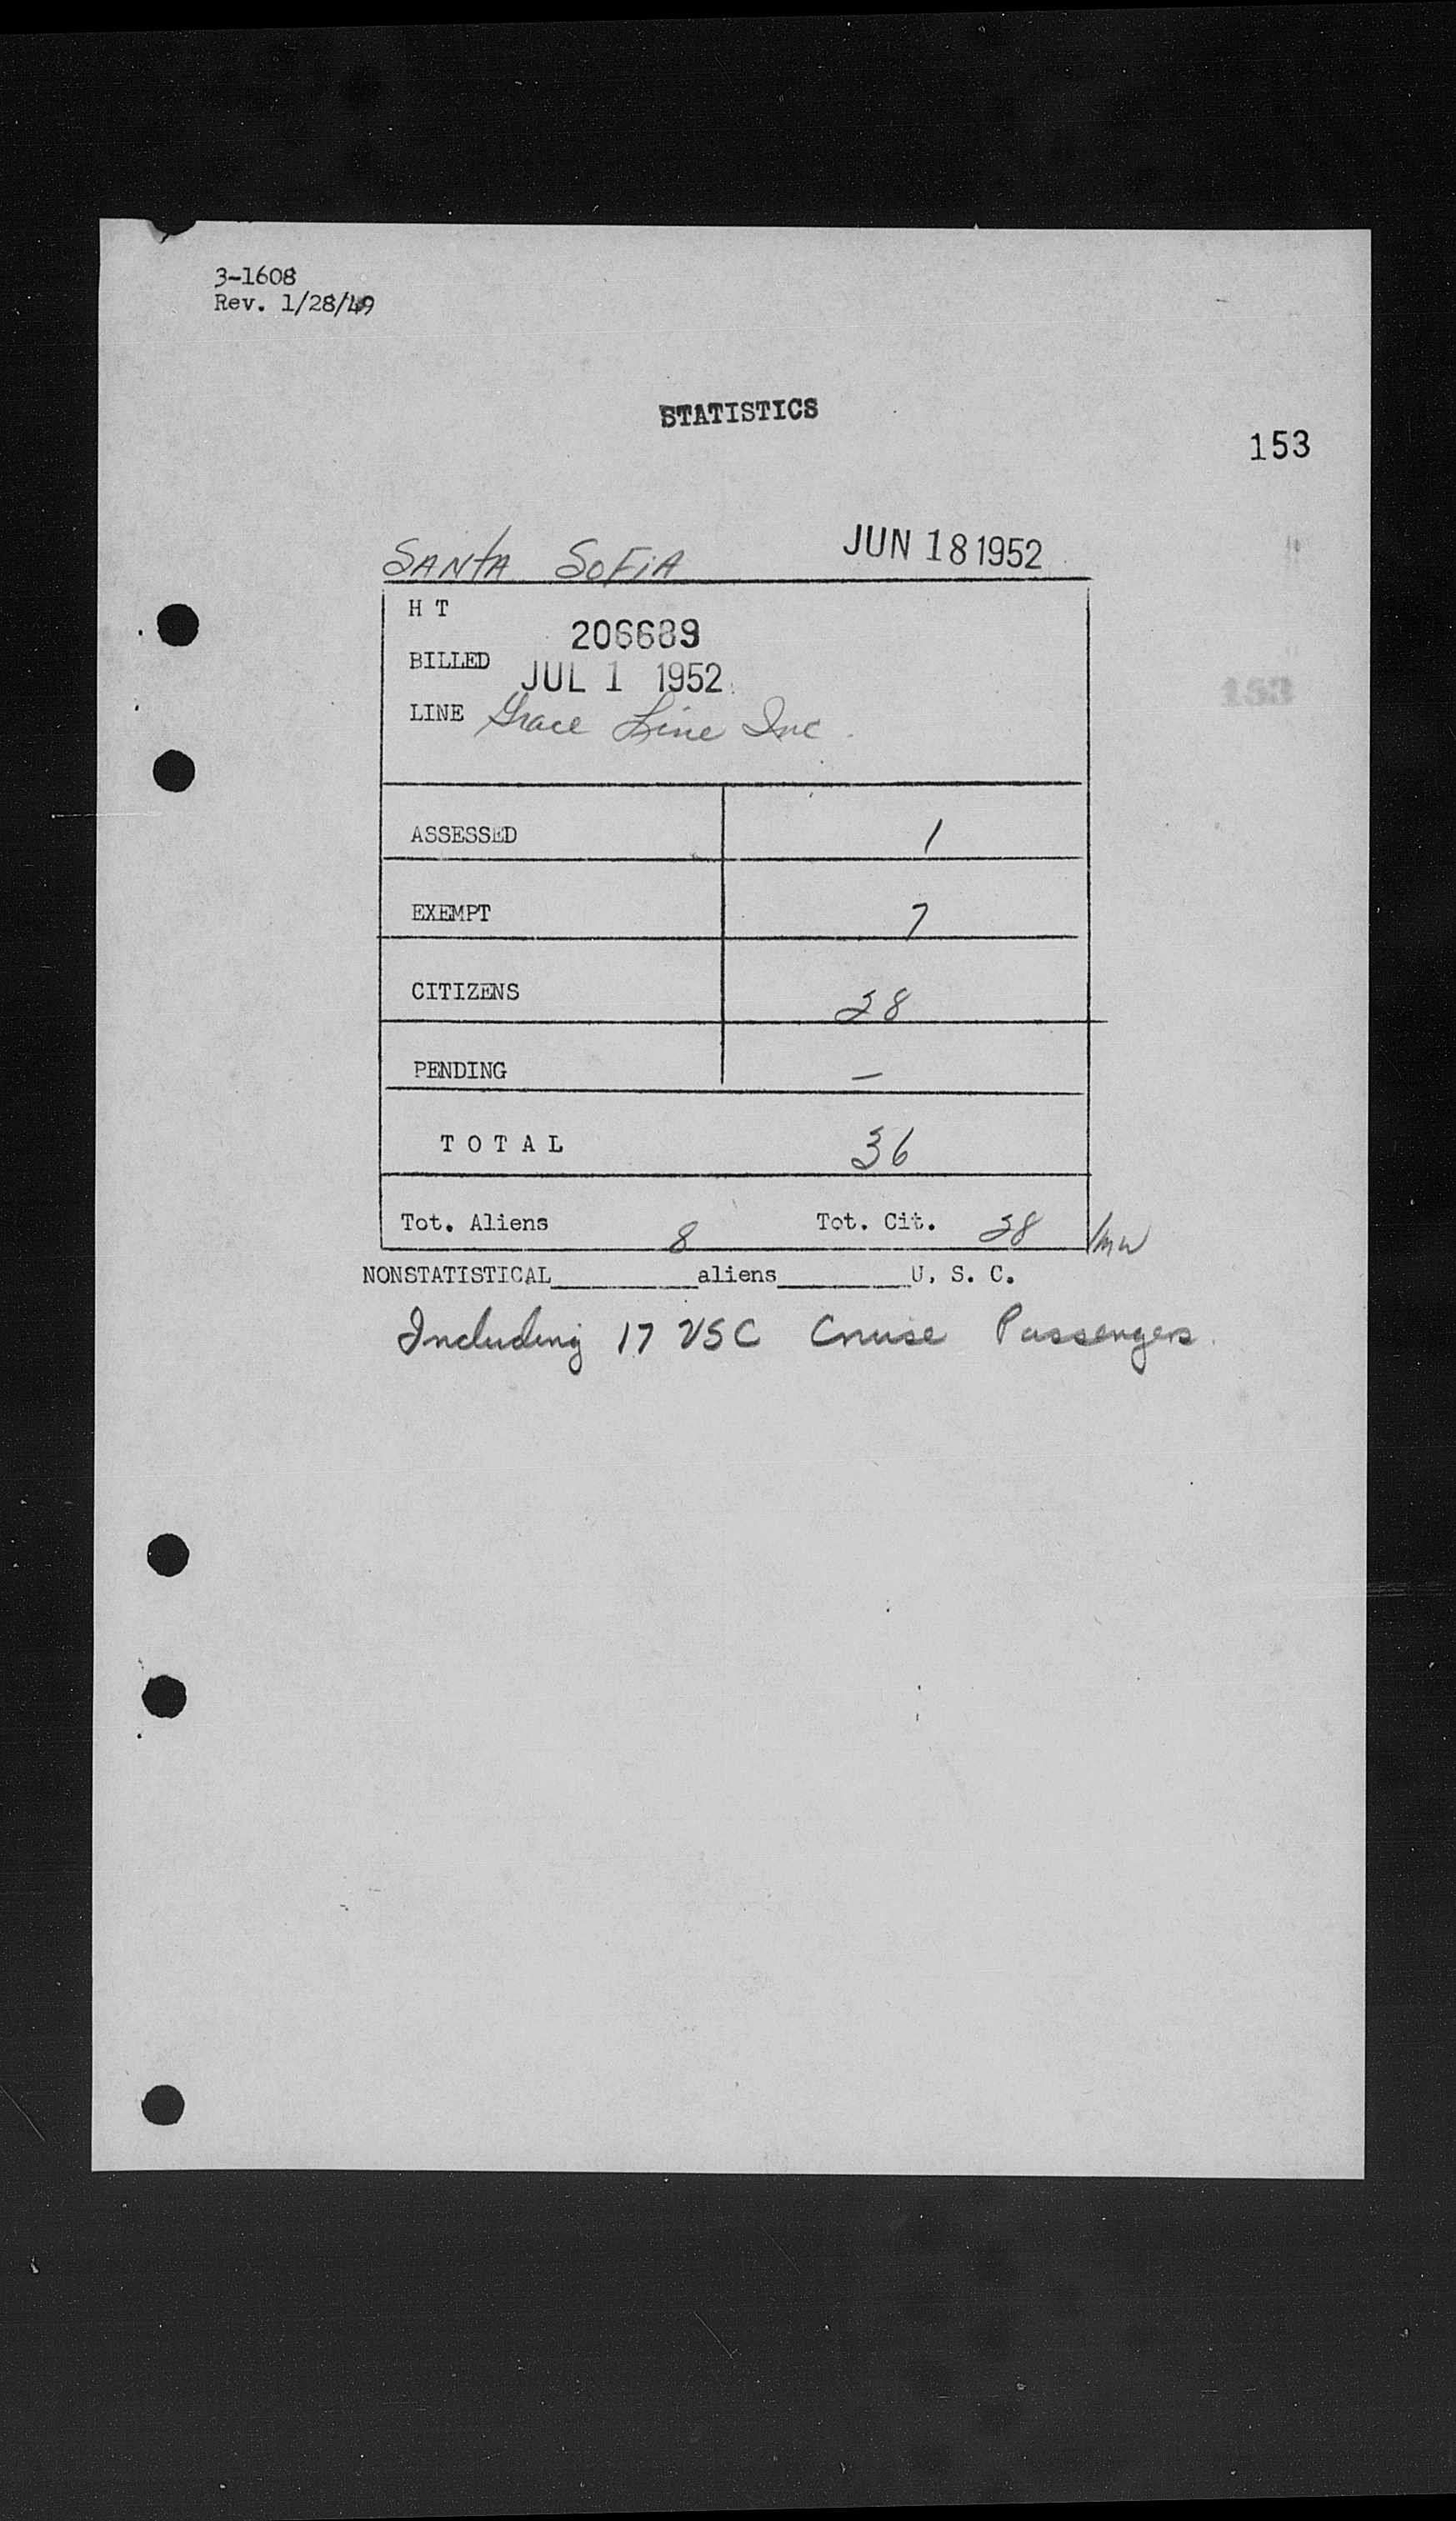 3-1608
Rev. 1/28/49
STATISTICS
153
SANTA SOFIA JUN 18 1952
H T
206689
BILLED JUL 1 1952
LINE Grace Line Inc.
ASSESSED 1
EXEMPT 7
CITIZENS 28
PENDING —
TOTAL 36
Tot. Aliens 8 Tot. Cit. 28 /mw
NONSTATISTICAL________aliens________U. S. C.
Including 17 USC Cruise Passengers.